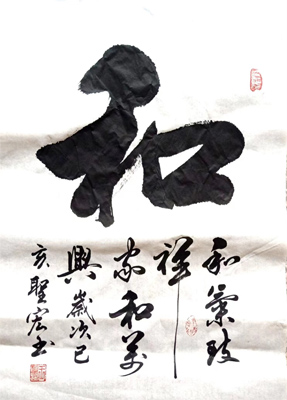 和
和氣致
祥
家和萬
興歲次己
亥聖宏書